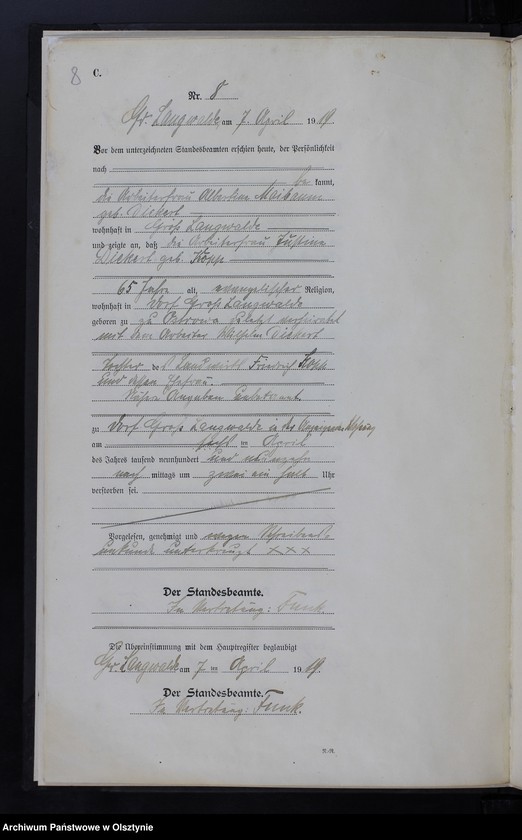 8
C.
Nr. 8
Gr. Langwalde, am 7. April 1919
Vor dem unterzeichneten Standesbeamten erschien heute, der Persönlichkeit
nach
be kannt,
die Arbeiterfrau Albertine
geb. Dickert
wohnhaft in Groß Langwalde
und zeigte an, daß die Arbeiterfrau Justine
Dickert geb. Kopp
65 Jahre alt, evangelischer Religion,
wohnhaft in Dorf Groß Langwalde
geboren zu zuletzt verheiratet
mit dem Arbeiter Wilhelm Dickert
Tochter des Landwirth Friedrich Kopp
und dessen Ehefrau.
Nähere Angaben unbekannt
zu Dorf Groß Langwalde in der Wohnung
am im April
des Jahres tausend neunhundert und neunzehn
nach mittags um zwei ein halb Uhr
verstorben sei.
Vorgelesen, genehmigt und wegen Schreibens
unkunde unterkreuzt × × ×
Der Standesbeamte.
In Vertretung: Funk.
Die Übereinstimmung mit dem Hauptregister beglaubigt
Gr. Langwalde am 7. ten April 1919.
Der Standesbeamte.
In Vertretung: Funk.
Archiwum Państwowe w Olsztynie